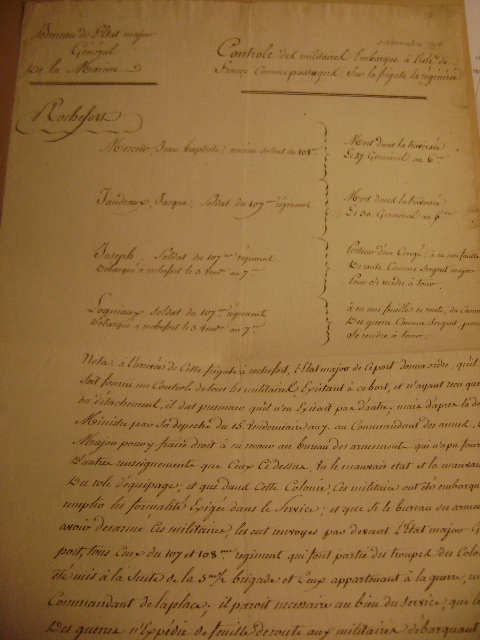 Bureau de l'Etat major
Général
De la Marine
Controle des militaires Embarqué à l'isle de
France Comme passagers Sur la frégate la régénérée
Rochefort
Mercier, Jean Baptiste, ancien soldat du 108e
Mort dans la traversée
Le 27 Germinal an 6me
Jandeaux, Jacque, Soldat du 107me régiment
Mort dans la traversée
Le 30 Germinal an 6me
Joseph, Soldat du 107me régiment
Débarqué à rochefort le 3 an 7me
Porteur d'un Congé, à eu une feuille
De route Comme Sergent major
Pour se rendre à
Logniaux Soldat du 107me régiment
Débarqué à rochefort le 3 an 7me
à eu une feuilles de route, du
Des guerre Comme Sergent, pour
Se rendre à
Nota, à l'arrivée de Cette frégate à rochefort, l'Etat major de Ce port donna ordre, qu'il
Soit formé un Controle de tous les militaires Existant à ce bord, et n'ayant rien que
du détachement, il dut présumer qu'il n'en Existoit pas d'autre, mais d'après la de
Ministre par Sa depeche du 15 Vendemiaire an 7, au Commandant des armes, L
Major pour y faire droit à eu recour au bureau des armements qui n'a pu four
D'autres renseignements que Ceux Ci dessus, Vu le mauvais etat et la mauvai
De role d'équipage, et que dans Cette Colonie, Ces militaire ont été embarqu
remplir les formalités Exigée dans le Service, et que Si le bureau des arme
avoir désarmé Ces militaires, les eut envoyés par devant l'Etat major G
port, tous Ceux du 107 et 108me régiment qui font partie des troupes des Colo
été mis à la Suite de la 5me 1/2 brigade et Ceux appartenant à la guerre, en
Commandant de la place, il paroit necessaire au bien du Service, que
Des guerres n'Expédie de feuille de route aux militaires débarquant